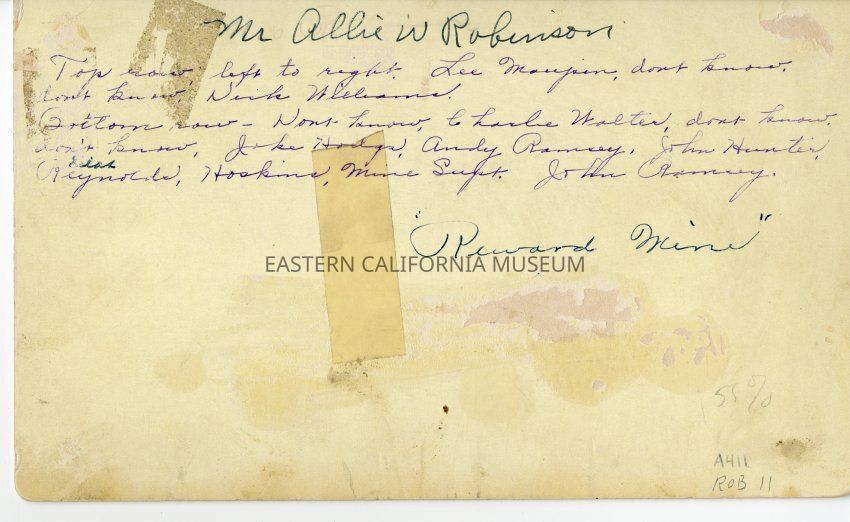 Mr Allie W Robinson
Top row, left to right. Lee Maupin, dont know.
dont know, Dick Williams.
Bottom row - Dont know, Charlie Walter, dont know.
don't know, Jake Hodgs, Andy Ramsey. John Hunter,
Reynolds, Hoskins, Mine Supt. John Ramsey.
"Reward Mine"
EASTERN CALIFORNIA MUSEUM
55%
A411
ROB 11